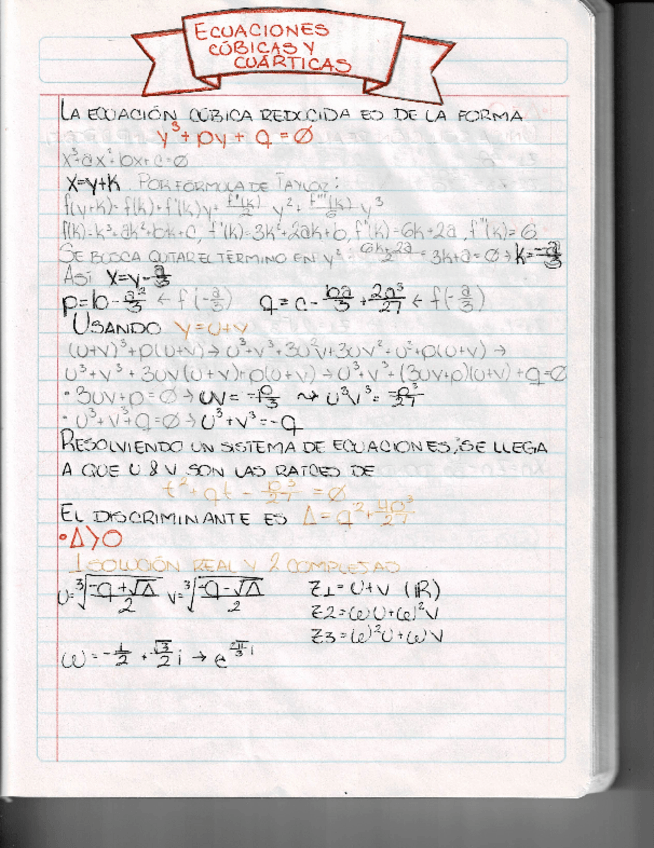 ECUACIONES
CÚBICAS Y
CUÁRTICAS
LA ECUACIÓN CÚBICA REDUCIDA ES DE LA FORMA
y³ + py + q = 0
x³+ax²+bx+c=0
x=y+k POR FÓRMULA DE TAYLOR:
f(y+k)=f(k)+f'(k)y+ f''(k)/2 y² + f'''(k)/6 y³
f(k)=k³+ak²+bk+c, f'(k)=3k²+2ak+b, f''(k)=6k+2a, f'''(k)=6
SE BUSCA QUITAR EL TÉRMINO EN y² (6k+2a)/2 = 3k+a=0 → k=-a/3
ASÍ x=y-a/3
p=b-a²/3 ← f'(-a/3) q=c-ba/3+2a³/27 ← f(-a/3)
USANDO y=u+v
(u+v)³+p(u+v) → u³+v³+3u²v+3uv²+u²+p(u+v) →
u³+v³+3uv(u+v)+p(u+v) → u³+v³+(3uv+p)(u+v)+q=0
• 3uv+p=0 → uv=-p/3 ⇝ u³v³=-p³/27
• u³+v³+q=0 → u³+v³=-q
RESOLVIENDO UN SISTEMA DE ECUACIONES, SE LLEGA
A QUE U & V SON LAS RAÍCES DE
t²+qt-p³/27=0
EL DISCRIMINANTE ES Δ=q²+4p³/27
• Δ>0
1 SOLUCIÓN REAL Y 2 COMPLEJAS
u=∛((-q+√Δ)/2) v=∛((-q-√Δ)/2) z1=u+v (ℝ)
z2=ωu+ω²v
z3=ω²u+ωv
ω=-1/2+√3/2 i → e^(2π/3 i)